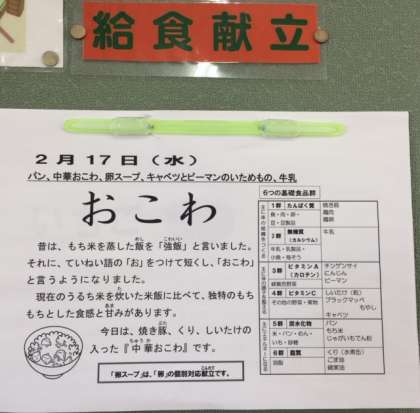 給食献立
2月17日(水)
パン、中華おこわ、卵スープ、キャベツとピーマンのいためもの、牛乳
おこわ
昔は、もち米を蒸した飯を「強飯」と言いました。
それに、ていねい語の「お」をつけて短くし、「おこわ」
と言うようになりました。
現在のうるち米を炊いた米飯に比べて、独特のもち
もちとした食感と甘みがあります。
今日は、焼き豚、くり、しいたけの
入った『中華おこわ』です。
「卵スープ」は、「卵」の個別対応献立です。
6つの基礎食品群
1群 たんぱく質
魚・肉・卵・
豆・豆製品
焼き豚
鶏肉
鶏卵
2群 無機質
(カルシウム)
牛乳・乳製品・
小魚・海そう
牛乳
3群 ビタミンA
(カロテン)
緑黄色野菜
チンゲンサイ
にんじん
ピーマン
4群 ビタミンC
その他の野菜・果物
しいたけ(乾)
ブラックマッペ
もやし
キャベツ
5群 炭水化物
米・パン・めん・
いも・砂糖
パン
もち米
じゃがいもでん粉
6群 脂質
油脂
くり(水煮缶)
ごま油
綿実油